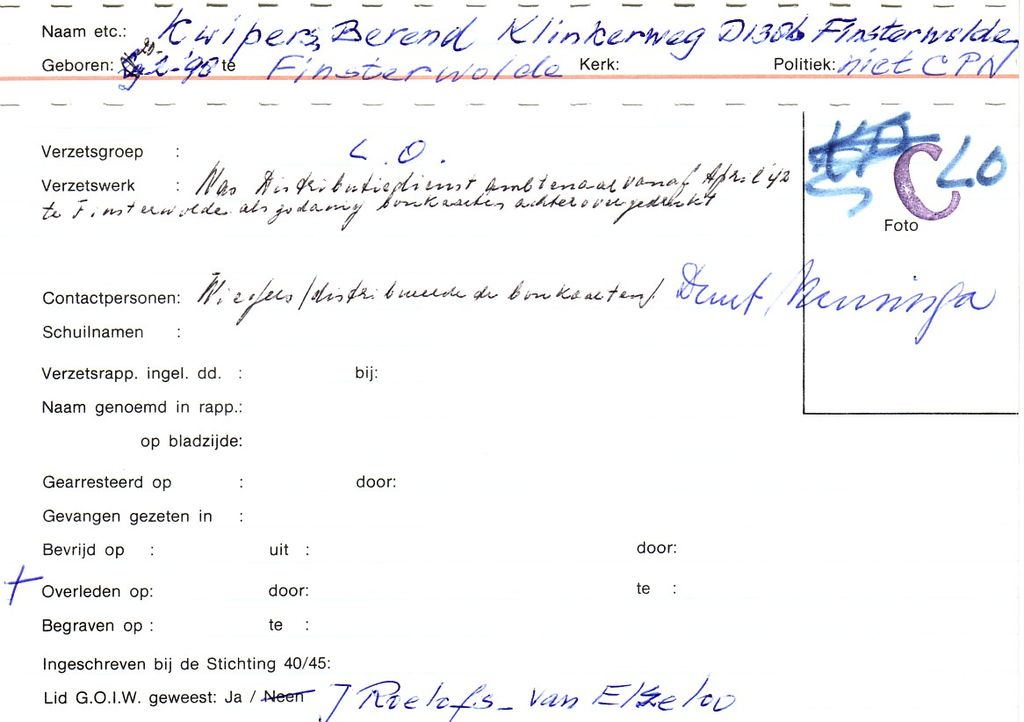 Naam etc.: Kuipers, Berend Klinkerweg D138b Finsterwolde
Geboren: -2-'90 te Finsterwolde Kerk: Politiek: niet CPN
Verzetsgroep : L.O.
C LO
Verzetswerk : Was Distributiedienst ambtenaar vanaf April '42
te Finsterwolde als zodanig bonkaarten achterover gedrukt
Foto
Contactpersonen: /distribueerde de bonkaarten/ Drent/Meuninga
Schuilnamen :
Verzetsrapp. ingel. dd. : bij:
Naam genoemd in rapp.:
op bladzijde:
Gearresteerd op : door:
Gevangen gezeten in :
Bevrijd op : uit : door:
+ Overleden op: door: te :
Begraven op : te :
Ingeschreven bij de Stichting 40/45:
Lid G.O.I.W. geweest: Ja / Neen J Roelofs - van